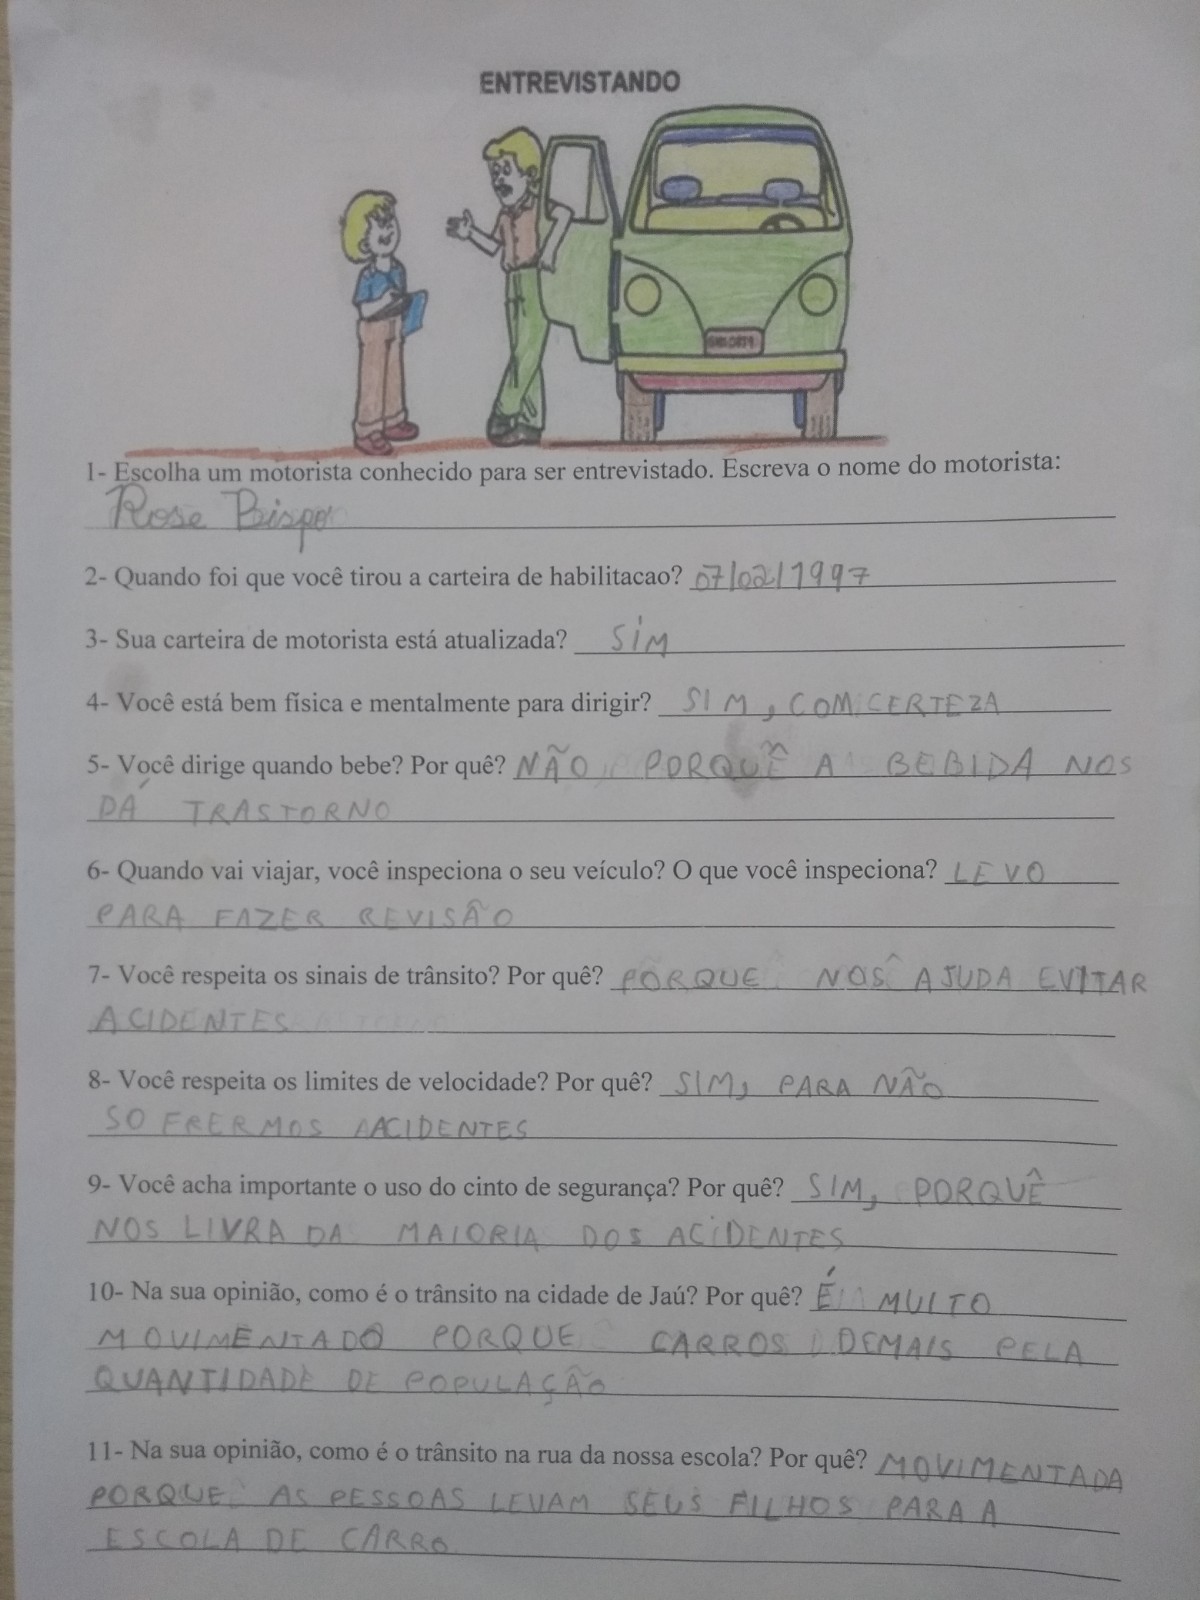 ENTREVISTANDO
1- Escolha um motorista conhecido para ser entrevistado. Escreva o nome do motorista:
Rose Bispo
2- Quando foi que você tirou a carteira de habilitacao? 07/02/1997
3- Sua carteira de motorista está atualizada? SIM
4- Você está bem física e mentalmente para dirigir? SIM, COM CERTEZA
5- Você dirige quando bebe? Por quê? NÃO, PORQUÊ A BEBIDA NOS
DÁ TRASTORNO
6- Quando vai viajar, você inspeciona o seu veículo? O que você inspeciona? LEVO
PARA FAZER REVISÃO
7- Você respeita os sinais de trânsito? Por quê? PORQUE NOS AJUDA EVITAR
ACIDENTES
8- Você respeita os limites de velocidade? Por quê? SIM, PARA NÃO
SOFRERMOS AACIDENTES
9- Você acha importante o uso do cinto de segurança? Por quê? SIM, PORQUÊ
NOS LIVRA DA MAIORIA DOS ACIDENTES
10- Na sua opinião, como é o trânsito na cidade de Jaú? Por quê? É MUITO
MOVIMENTADO PORQUE CARROS DEMAIS PELA
QUANTIDADE DE POPULAÇÃO
11- Na sua opinião, como é o trânsito na rua da nossa escola? Por quê? MOVIMENTADA
PORQUE AS PESSOAS LEVAM SEUS FILHOS PARA A
ESCOLA DE CARRO